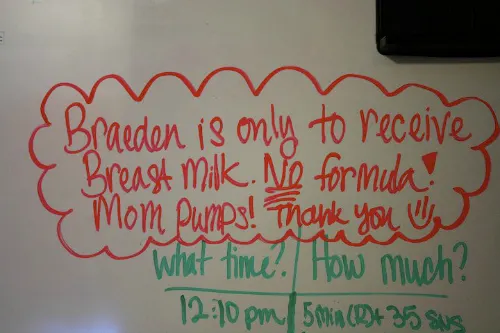 Braeden is only to receive
Breast Milk. No formula!
Mom pumps! Thank you
What time? How much?
12:10 pm 5 min (R) + 35 SNS